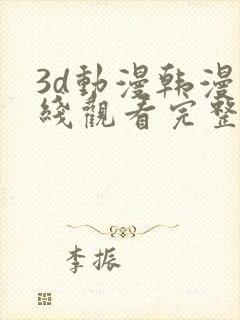 3d動漫韩漫
綫觀看完整
李振